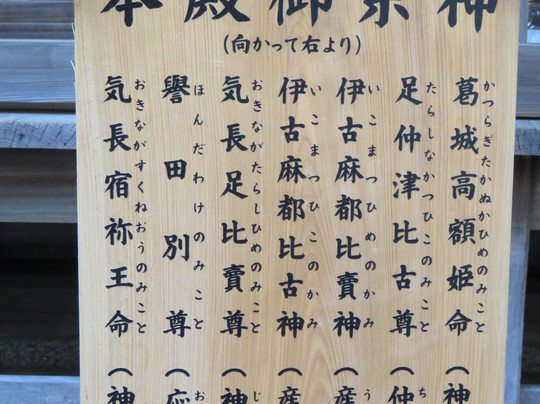 本殿御祭神
(向かって右より)
葛城高額姫命(神
かつらぎたかぬかひめのみこと
足仲津比古尊(仲
たらしなかつひこのみこと ち
伊古麻都比賣神(産
いこまつひめのかみ う
伊古麻都比古神(産
いこまつひこのかみ
気長足比賣尊(神
おきながたらしひめのみこと じ
譽田別尊(応
ほんだわけのみこと お
気長宿祢王命(神
おきながすくねおうのみこと